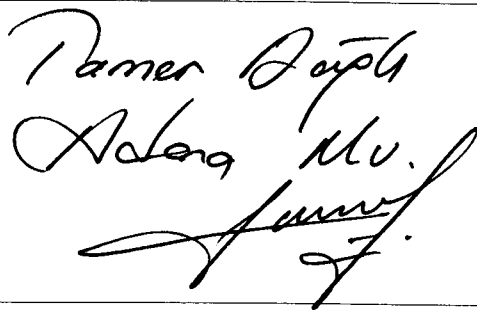 Tamer Dağlı
Adana Mv.